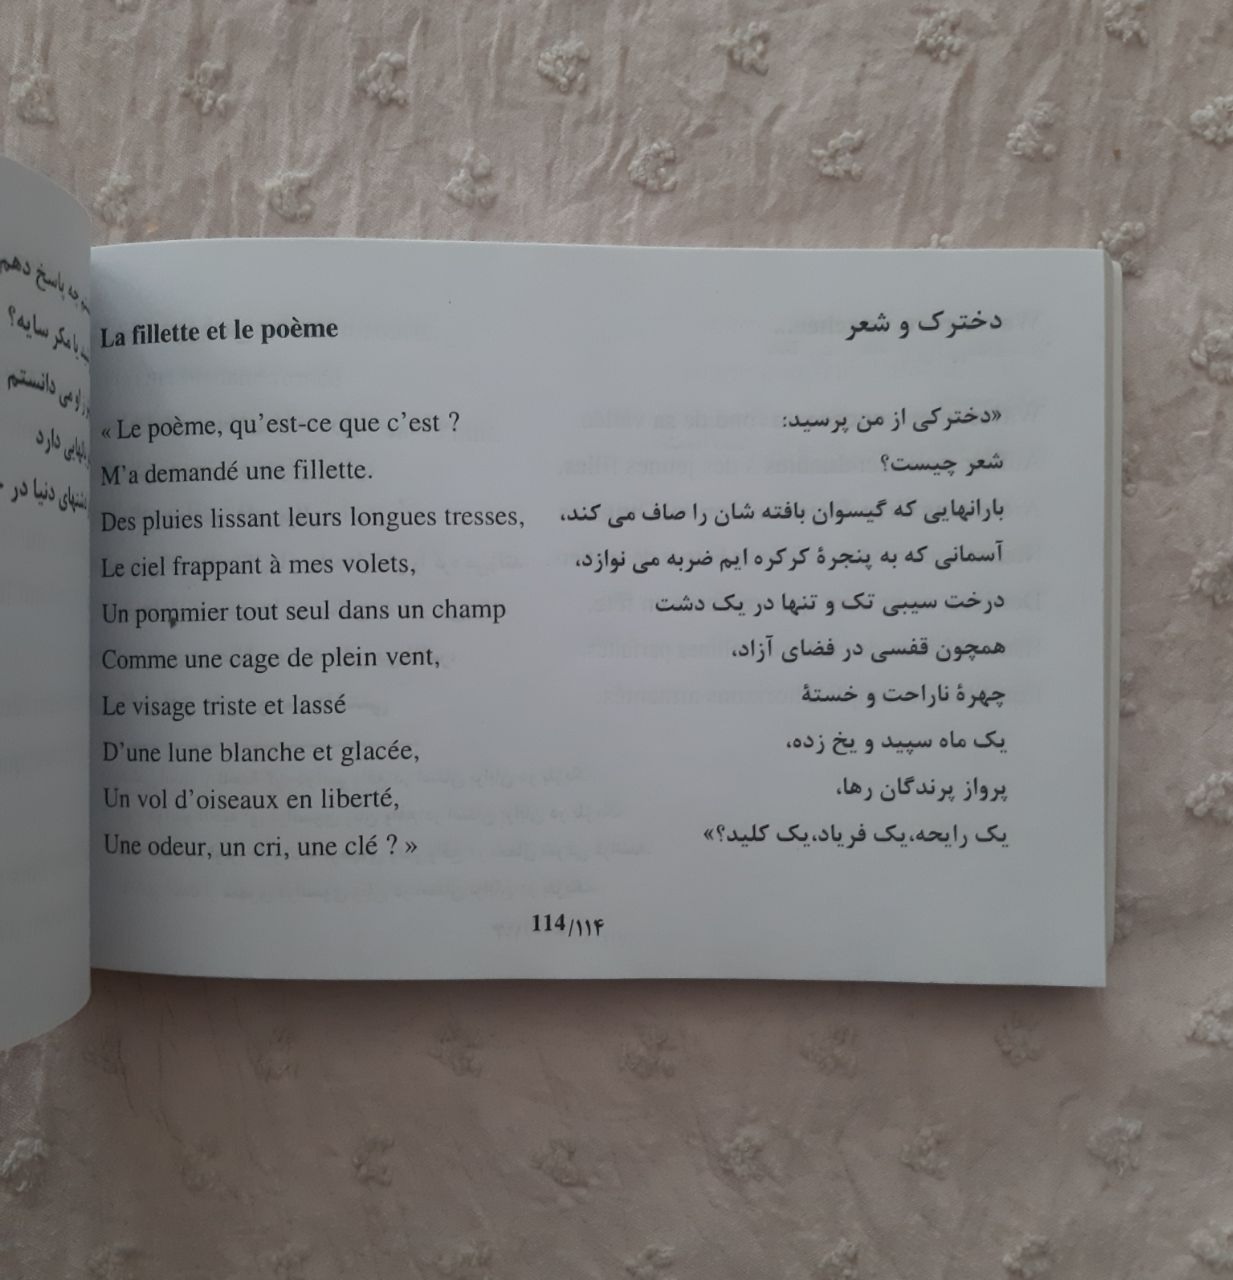 La fillette et le poème
« Le poème, qu’est-ce que c’est ?
M’a demandé une fillette.
Des pluies lissant leurs longues tresses,
Le ciel frappant à mes volets,
Un pommier tout seul dans un champ
Comme une cage de plein vent,
Le visage triste et lassé
D’une lune blanche et glacée,
Un vol d’oiseaux en liberté,
Une odeur, un cri, une clé ? »
دخترک و شعر
«دخترکی از من پرسید:
شعر چیست؟
بارانهایی که گیسوان بافته شان را صاف می کند،
آسمانی که به پنجرهٔ کرکره ایم ضربه می نوازد،
درخت سیبی تک و تنها در یک دشت
همچون قفسی در فضای آزاد،
چهرهٔ ناراحت و خستهٔ
یک ماه سپید و یخ زده،
پرواز پرندگان رها،
یک رایحه،یک فریاد،یک کلید؟»
114/۱۱۴
چه پاسخ دهم
با مکر سایه؟
او می دانستم
دارد
دنیا در